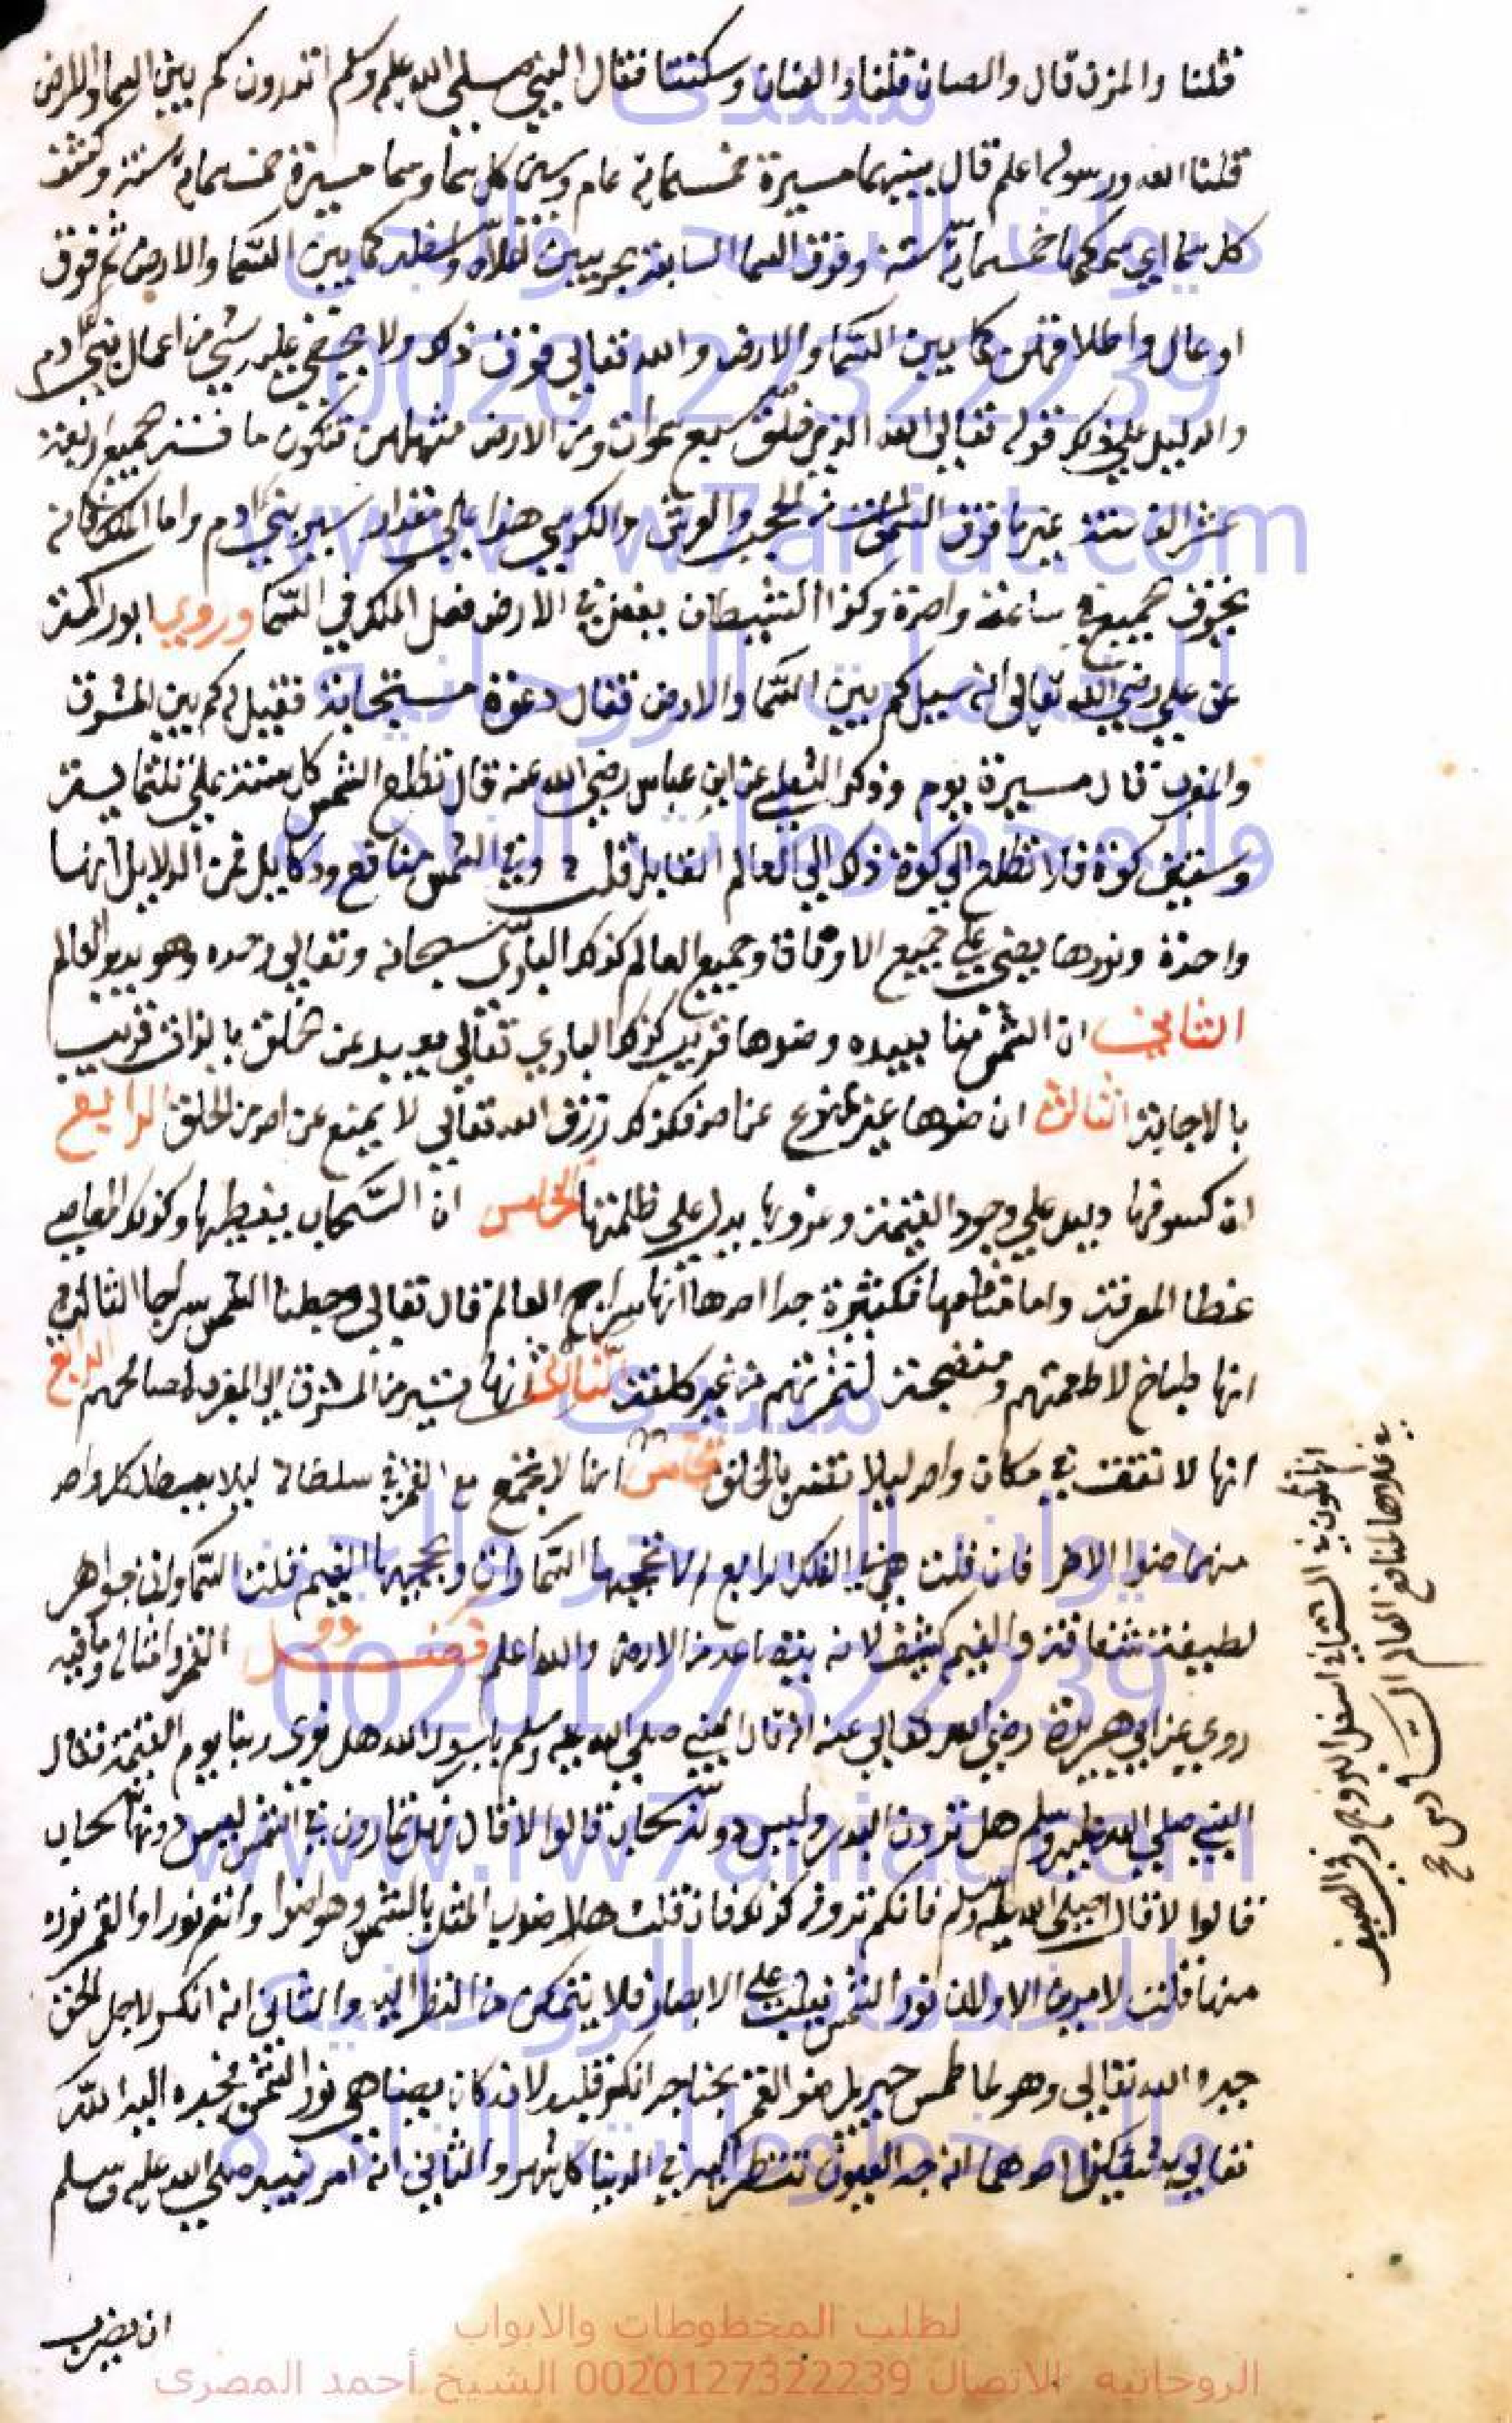 قلنا والمزن قال والعنان قلنا والعنان وسكتنا فقال النبي صلي الله عليه وسلم اتدرون كم بين السما والارض
قلنا الله ورسوله اعلم قال بينهما مسيرة خمسماية عام وبين كل سما وسما مسيرة خمسماية سنة وكثف
كل سما اي سمكها خمسماية سنة وفوق السما السابعة بحر بين اعلاه واسفله كما بين السما والارض ثم فوق
اوعال واظلافهن كما بين السما والارض والله تعالي فوق ذلك ولا يخفي عليه شي من اعمال بني ادم
والدليل علي ذلك قوله تعالي الله الذي خلق سبع سموات ومن الارض مثلهن فتكون مسافة جميع اربعة
عشر الف سنة غير ما فوق السموات من الحجب والعرش والكرسي هذا علي مقدار سير بني ادم واما الملك فانه
يخرق جميع في ساعة واحدة وكذا الشيطان يفعل في الارض فعل الملك في السما وروي ابو
عن علي رضي الله تعالي انه سيل كم بين السما والارض فقال دعوة مستجابة فقيل له كم بين المشرق
والمغرب قال مسيرة يوم وذكر الثعلبي عن ابن عباس رضي الله عنه قال تطلع الشمس كل سنة علي ثلثماية
وستين كوة فلا تطلع الي كوة ذلك الي العام القابل قلت وفي الشمس منافع ودلايل فمن الدلايل انها
واحدة ونورها يضي علي جميع الافاق وجميع العالم كذلك الباري سبحانه وتعالي وحده وهو يدبر العالم
الثاني ان الشمس منا بعيده وضوها قريب كذلك الباري تعالي بعيد عن خلقه بالذات قريب
بالاجابة الثالث ان ضوها غير ممنوع عن احد فكذلك رزق الله تعالي لا يمنع عن احد من الخلق الرابع
ان كسوفها دليل علي وجود القيمة وغروبها يدل علي ظلمتها الخامس ان السحاب يغطيها وكذلك المعاصي
غطا المعرفة واما منافعها فكثيرة جدا احدها انها سراج العالم قال تعالي وجعلنا الشمس سراجا الثاني
انها طباخ لاطعمتهم ومنضجة لثمرتهم من غير كلفة الثالث انها تسير من المشرق الي المغرب لمصالحهم الرابع
انها لا تقف في مكان واحد ليلا تضر بالخلق الخامس انها لا تجتمع مع القمر في سلطانه ليلا يبطل كل واحد
منهما ضوا الاخر فان قلت هي في الفلك الرابع ولا تحجبها السماوات ويحجبها الغيم قلت السماوات جواهر
لطيفة شفافة والغيم كثيف لانه يتصاعد من الارض والله اعلم فصل القمر
روي عن ابي هريرة رضي الله تعالي عنه انه قال النبي صلي الله عليه وسلم يا رسول الله هل نري ربنا يوم القيمة فقال
النبي صلي الله عليه وسلم هل ترون البدر وليس دونه سحاب قالوا لا قال فهل تمارون في الشمس ليس دونها سحاب
قالوا لا قال صلي الله عليه وسلم فانكم ترونه كذلك فان قلت هلا ضرب المثل بالشمس وهو اضوا وانم نورا والقمر نوره
منها قلت لامرين الاول ان نور الشمس يغلب علي الابصار فلا يتمكن من النظر اليه والثاني انه انكسر لاجل الحق
جبره الله تعالي وهو لما طمس جبريل ضو القمر بجناحه انكسر قلبه لانه كان يضاهي نور الشمس فجبره الله
تعالي بشيئين احدهما انه جعل العيون تنتظر اليه في الدنيا كل شهر والثاني انه امر نبيه صلي الله عليه وسلم
ان يضرب
انها تكون في الشتا في اسفل البروج وفي الصيف
في علاها لمنافع العالم السادس صح
منتدى
ديوان السحر والجن
0020127322239
www.rw7aniat.com
للخدمات الروحانيه
والمخطوطات النادره
منتدى
ديوان السحر والجن
0020127322239
www.rw7aniat.com
للخدمات الروحانيه
والمخطوطات النادره
لطلب المخطوطات والابواب
الروحانيه الاتصال 0020127322239 الشيخ أحمد المصرى